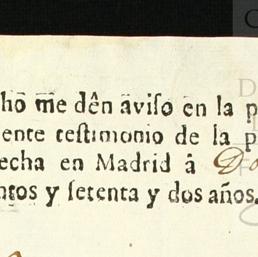 ho me dên aviſo en la p
ente teſtimonio de la p
echa en Madrid â Do
ntos y ſetenta y dos años.